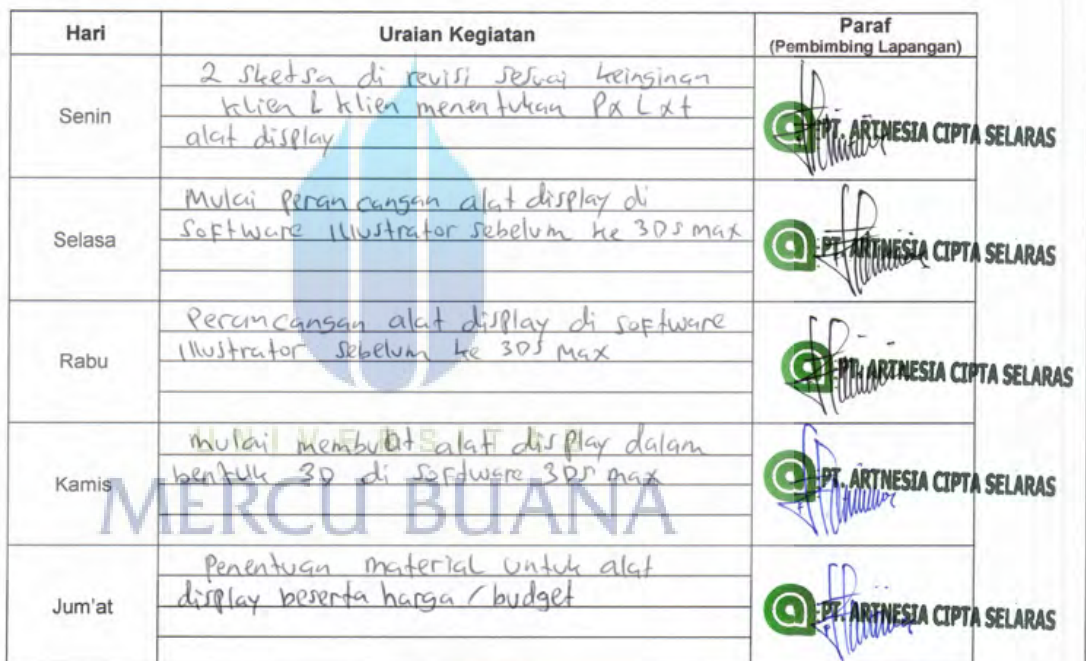 Hari Uraian Kegiatan Paraf
(Pembimbing Lapangan)
2 sketsa di revisi sesuai keinginan
Senin klien & klien menentukan PxLxt
alat display
PT. ARTNESIA CIPTA SELARAS
Mulai perancangan alat display di
Selasa software illustrator sebelum ke 3Ds max
PT. ARTNESIA CIPTA SELARAS
Perancangan alat display di software
Rabu illustrator sebelum ke 3DS Max
PT. ARTNESIA CIPTA SELARAS
UNIVERSITAS
mulai membuat alat display dalam
Kamis bentuk 3D di software 3DS max
PT. ARTNESIA CIPTA SELARAS
MERCU BUANA
Penentuan material untuk alat
Jum'at display beserta harga / budget
PT. ARTNESIA CIPTA SELARAS